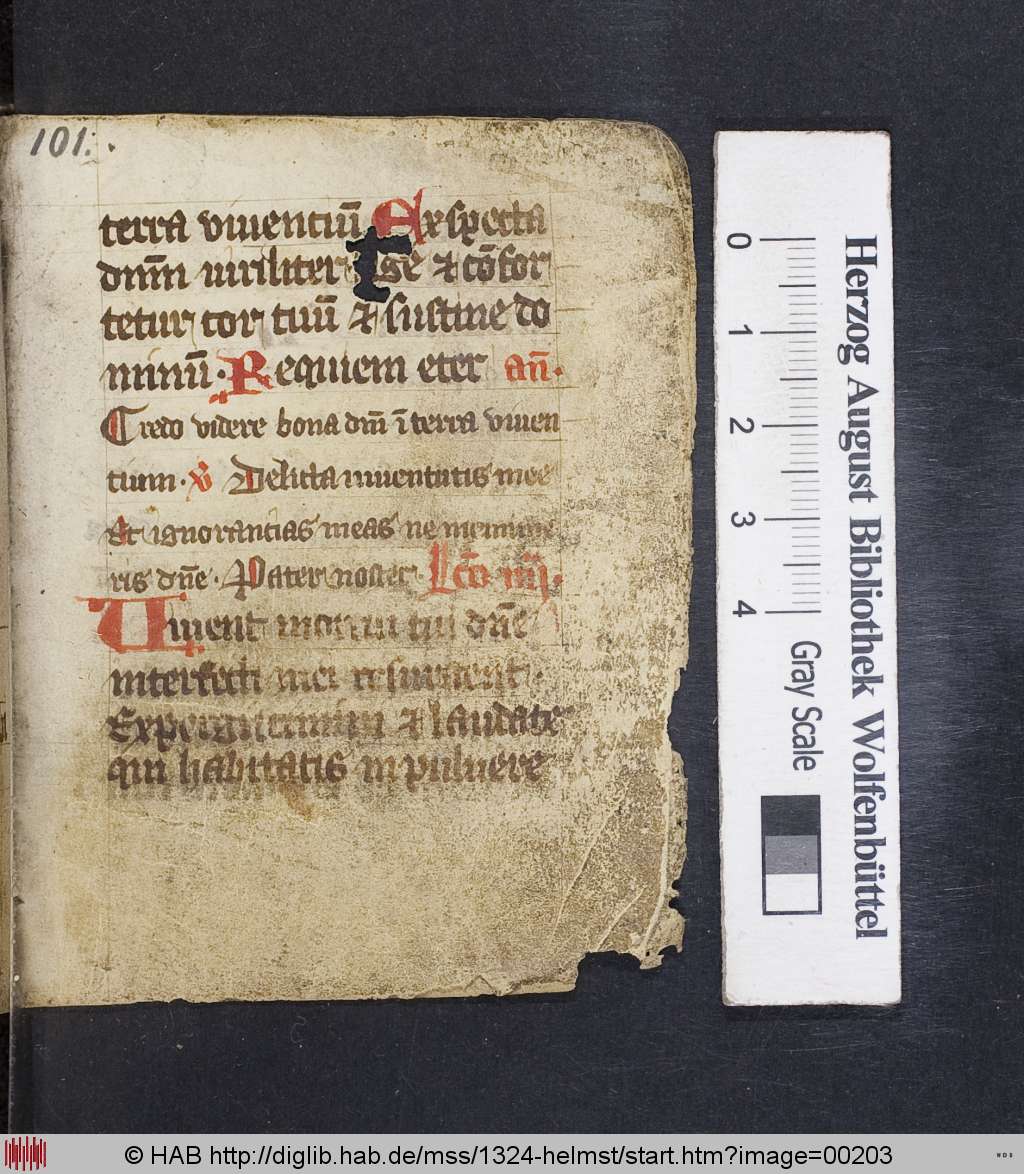 101.
terra viuenciū Exspecta
dnm̄ uiriliter age ⁊ cōfor
tetur cor tuū ⁊ sustine do
minū. Requiem eter an̄.
Credo videre bona dn̄i ī terra viuen
tium. v̄ Delicta iuuentutis mee
Et ignorancias meas ne memine
ris dn̄e. Pater noster. Lc̄o iiij.
Uiuent mortui tui dn̄e
interfecti mei resurgent.
Expergiscimini ⁊ laudate
qui habitatis in puluere
0
1
2
3
4
Gray Scale
Herzog August Bibliothek Wolfenbüttel
© HAB http://diglib.hab.de/mss/1324-helmst/start.htm?image=00203